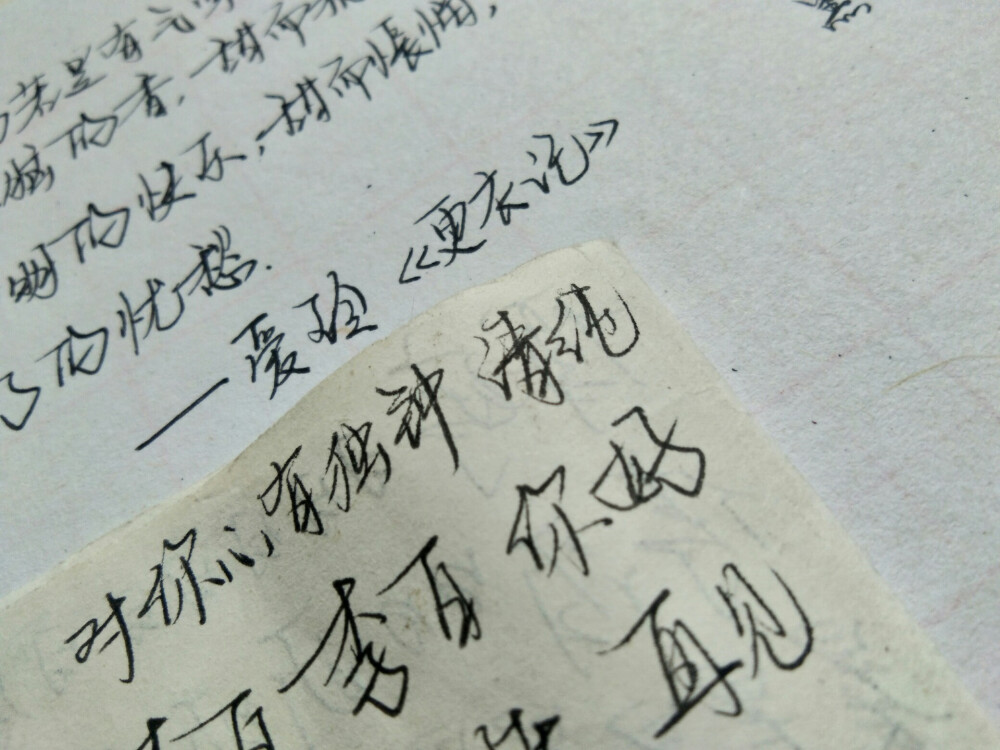 若是有气
脑的香,甜而
明的快乐,甜而怅惘,
了的忧愁.
—爱玲《更衣记》
对你心有独钟 清纯
秀百 你好
百 再见